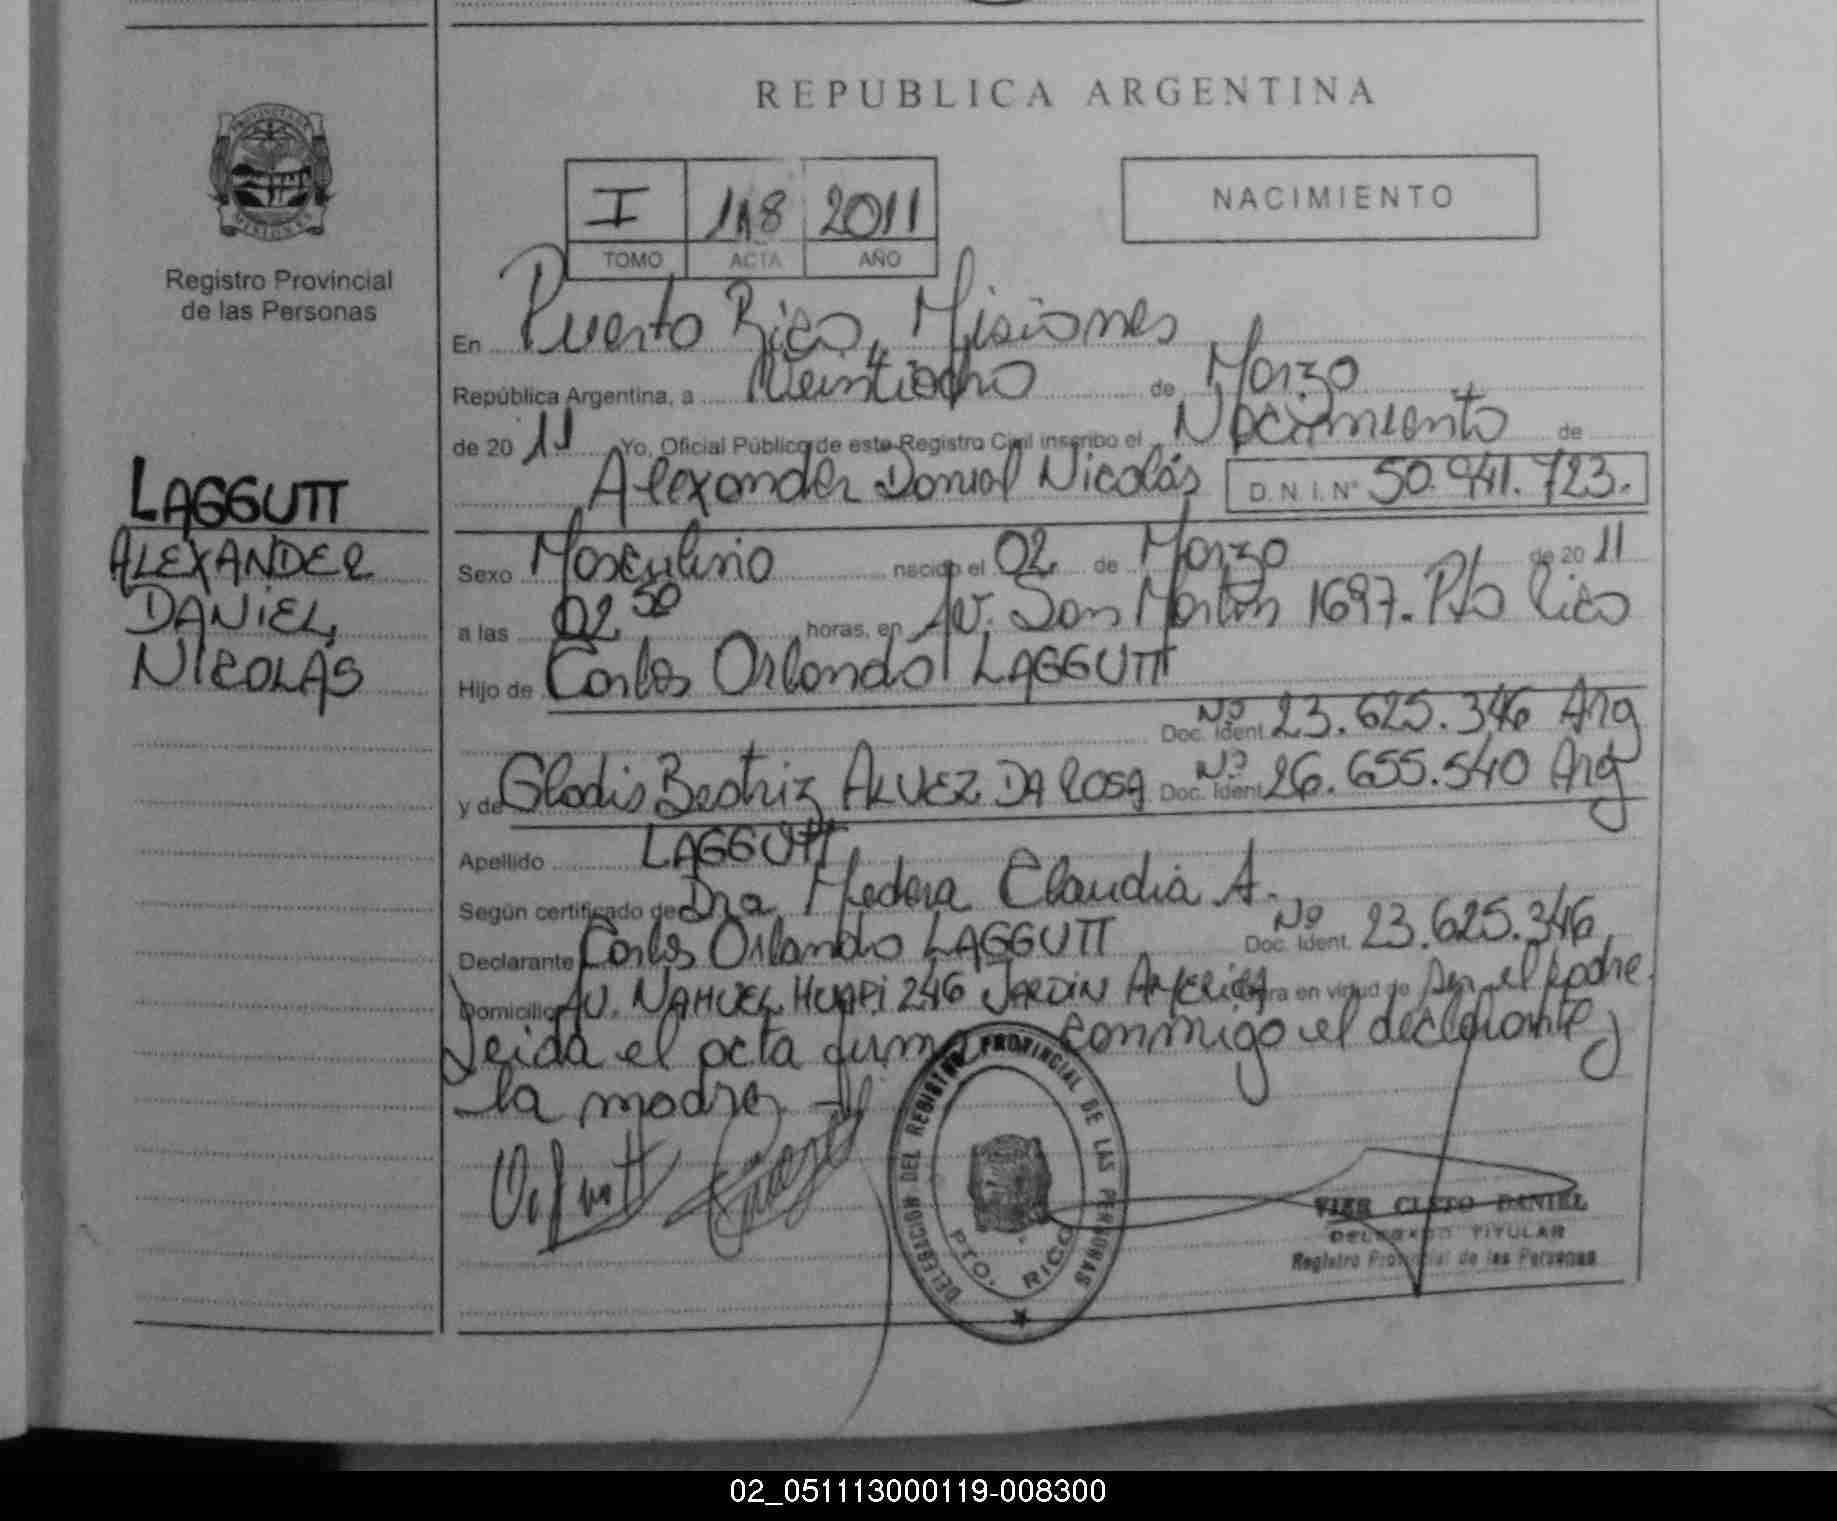 REPUBLICA ARGENTINA
PROVINCIA DE MISIONES
Registro Provincial
de las Personas
I 118 2011
TOMO ACTA AÑO
NACIMIENTO
En Puerto Rico, Misiones
República Argentina, a Veintiocho de Marzo
de 2011 Yo, Oficial Público de este Registro Civil inscribo el Nacimiento de
Alexander Daniel Nicolás D.N.I. Nº 50.941.723.
LAGGUTT
ALEXANDER
DANIEL
NICOLÁS
Sexo Masculino nacido el 02 de Marzo de 2011
a las 02 50 horas, en Av. San Martín 1697. Pto Rico
Hijo de Carlos Orlando LAGGUTT
Doc. Ident. Nº 23.625.346 Arg
y de Gladis Beatriz ALVEZ DA ROSA Doc. Ident. Nº 26.655.540 Arg
Apellido LAGGUTT
Según certificado de Dra Madera Claudia A.
Declarante Carlos Orlando LAGGUTT Doc. Ident. Nº 23.625.346
Domicilio AV. NAHUEL HUAPI 246 JARDIN AMERICA en virtud de ser el padre.
Leida el acta firma conmigo el declarante y
la madre
DELEGACION DEL REGISTRO PROVINCIAL DE LAS PERSONAS
PTO. RICO
VIER CLETO DANIEL
DELEGADO TITULAR
Registro Provincial de las Personas
02_051113000119-008300